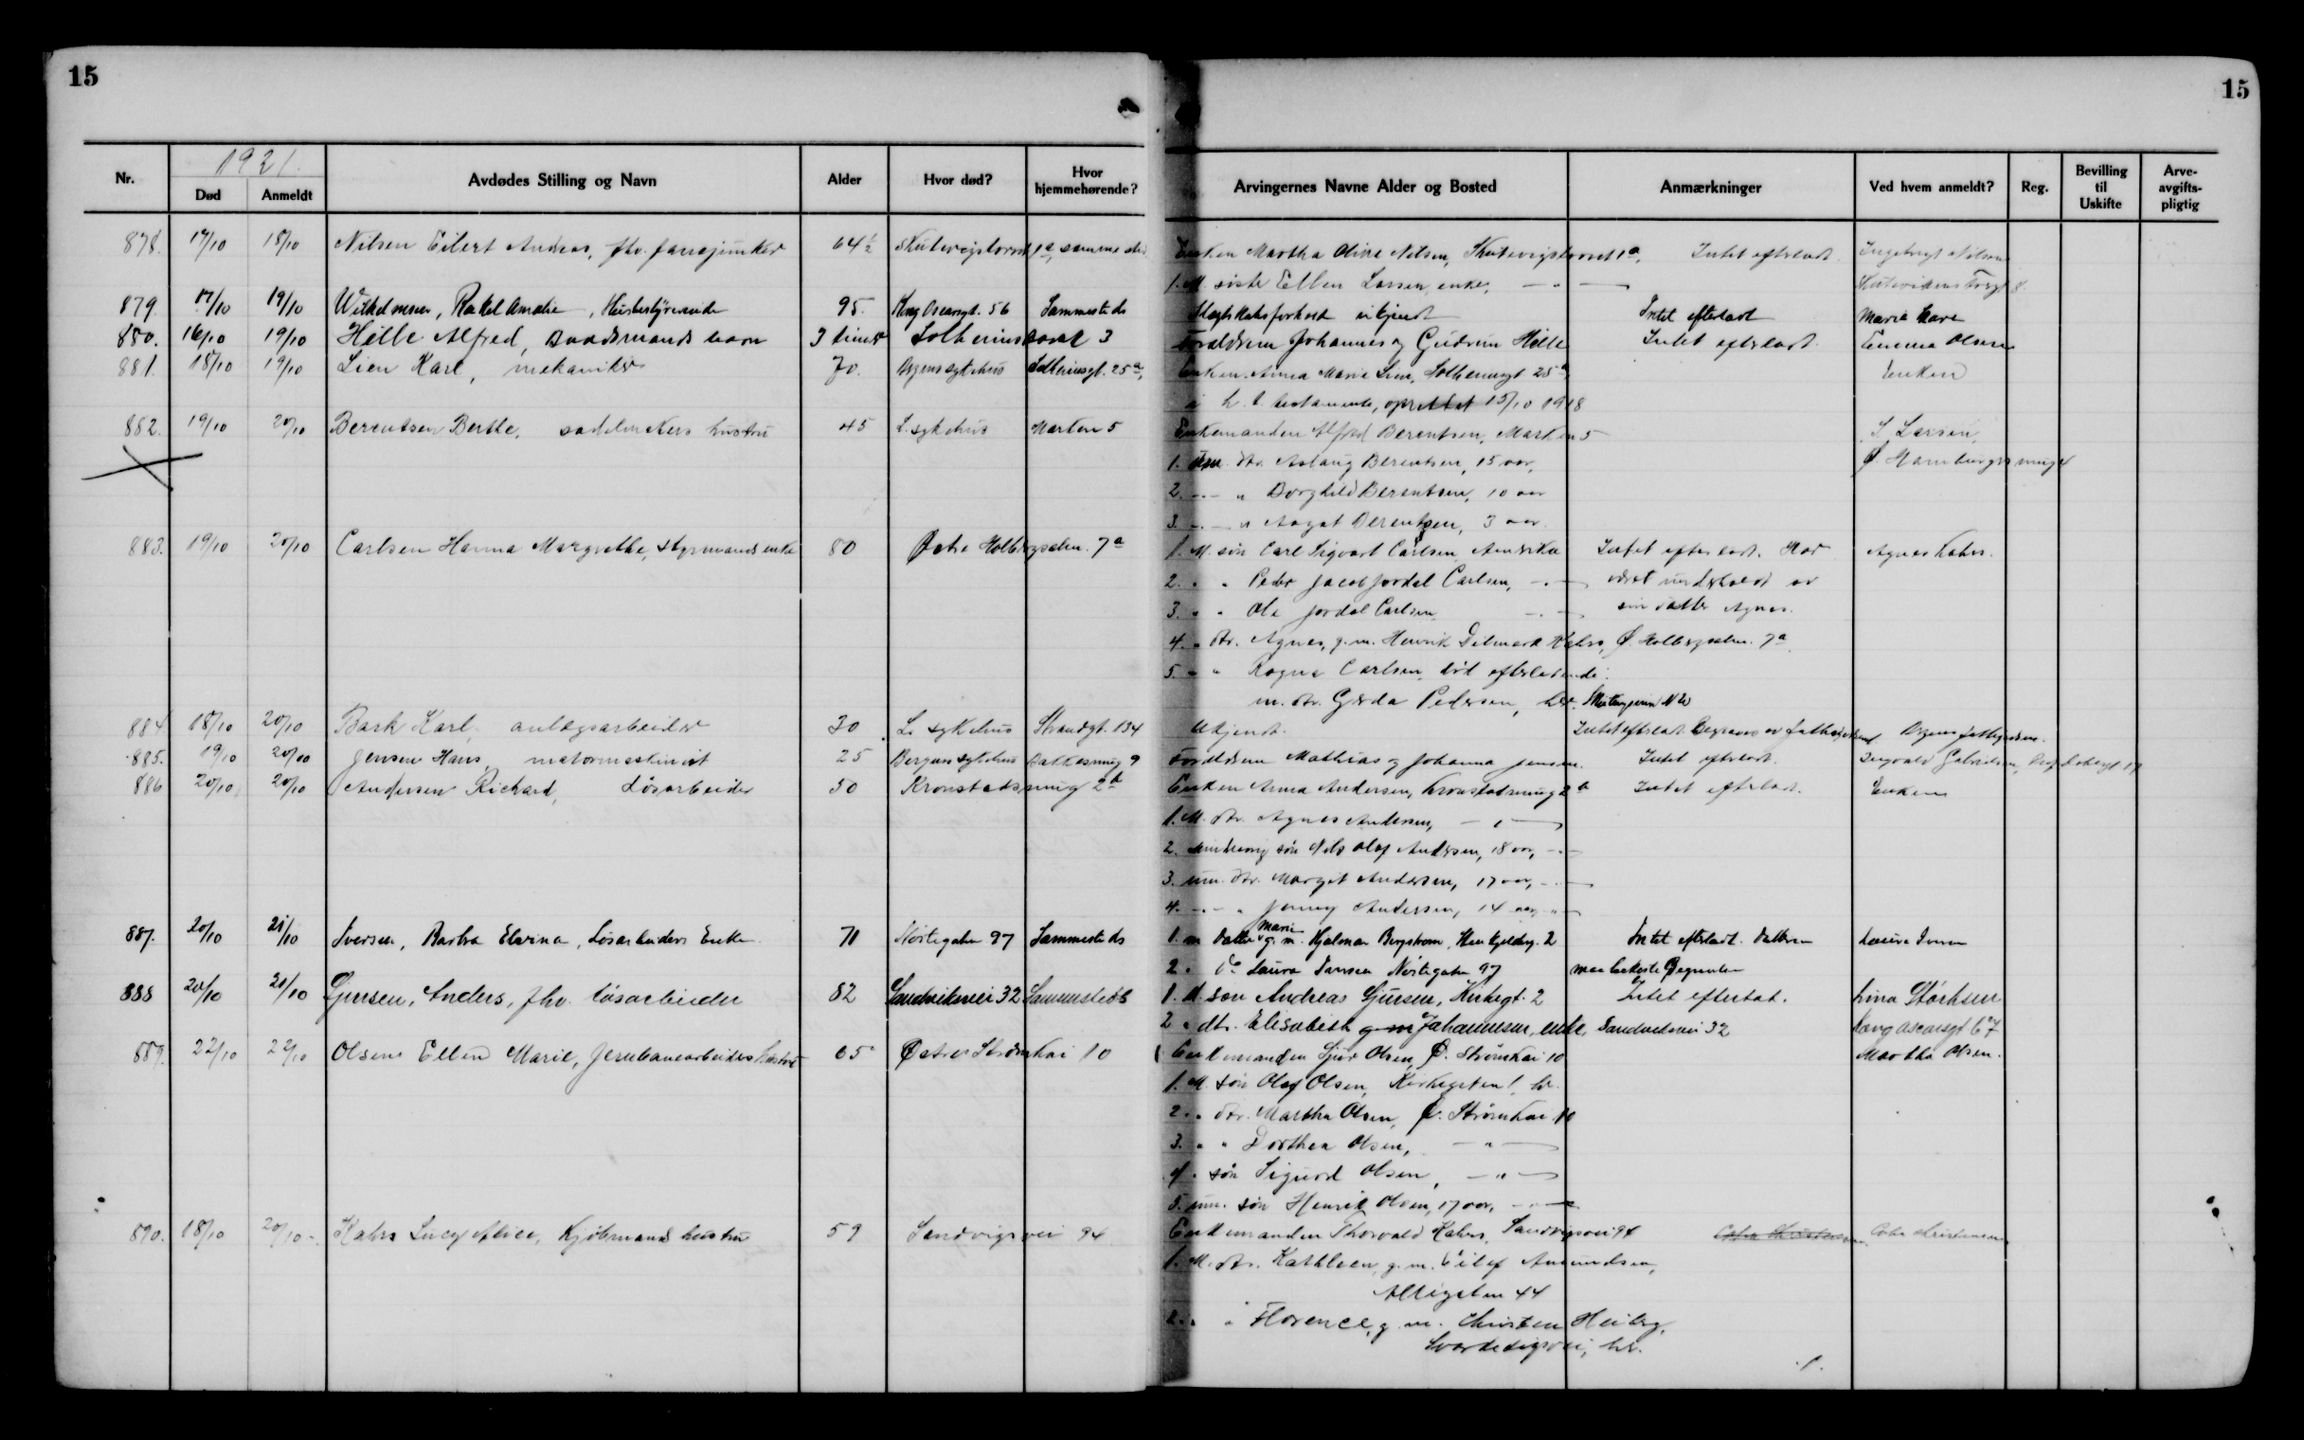 15
15
1921.
Nr. Død Anmeldt Avdødes Stilling og Navn Alder Hvor død? Hvor hjemmehørende? Arvingernes Navne Alder og Bosted Anmærkninger Ved hvem anmeldt? Reg. Bevilling til Uskifte Arve-avgifts-pligtig
878. 17/10 18/10 Nilsen Eilert Andreas, fhv. 64½ Skutevigstorvet 1a, samme sted Enken Martha Oline Nilsen, Skutevigstorvet 1a, Intet efterladt. Ingebrigt Nilsen
1. M. søster Ellen Larsen, enke, - " -
879. 17/10 19/10 Wilhelmsen, Rakel Amalie, Husbestyrerinde 95. Kong Oscarsgt. 56 Sammesteds Slegtskabsforhold ukjendt Intet efterladt Marie
880. 16/10 19/10 Hille Alfred, Baadsmands barn 3 timer Solheims 3 Forældrene Johannes og Gudrun Hille Intet efterladt. Emma Olsen
881. 18/10 19/10 Lien Karl, mekaniker 70. Bergens sykehus Solheimsgt. 25a, Enken Anna Marie Lien, Solheimsgt 25a,
testamente, oprettet 15/10 1918 Enken
882. 19/10 20/10 Berentsen Berthe, sadelmakers hustru 45 L. sykehus Marken 5 Enkemanden Alfred Berentsen, Marken 5 Larsen,
1. um. dtr. Aslaug Berentsen, 15 aar,
2. - " - " Borghild Berentsen, 10 aar
3. - " - " Aagot Berentsen, 3 aar.
883. 19/10 20/10 Carlsen Hanna Margrethe, styrmands enke 80 Østre Holbergsalm. 7a 1. M. søn Carl Sigvart Carlsen Amerika Intet efterladt. Har Agnes Kahrs.
2. " " Peder Jacob Jordal Carlsen, - " - været underholdt av
3. " " Ole Jordal Carlsen - " - sin datter Agnes.
4. " dtr. Agnes, g. m. Henrik Kahrs, Ø. Holbergsalm. 7a
5. " " Ragna Carlsen, død efterladende:
m. dtr. Gerda Pedersen, her.
884 18/10 20/10 Bark Karl, anlægsarbeider 30 L. sykehus Strandgt. 134 Ukjendt. Intet efterladt Begraves av
885. 19/10 20/10 Jensen Hans, motormaskinist 25 Bergens sykehus 9 Forældrene Mathias og Johanna Jensen. Intet efterladt.
886 20/10 20/10 Andersen Richard, Løsarbeider 50 Kronstadsmug 2b Enken Anna Andersen, Kronstadsmug 2b Intet efterladt. Enken
1. M. dtr. Agnes Andersen, - " -
2. mindreaarig søn Nils Olaf Andersen, 18 aar, - " -
3. um. dtr. Margit Andersen, 17 aar, - " -
4. - " - " Jenny Andersen, 14 aar, - " -
887. 20/10 21/10 Iversen, Barbra Elevina, Løsarbeiders Enke 71 Nøstegaten 97 Sammesteds 1. m datter Marie g. m. Hjalmar Bergstrøm, 2 Intet efterladt. Datteren Laura Iversen
2. " Do Laura Iversen Nøstegaten 97 maa bekoste Begravelsen
888 20/10 21/10 Gjursen, Anders, fhv. løsarbeider 82 Sandviksvei 32 Sammesteds 1. M. søn Andreas Gjursen, Kirkegt. 2 Intet efterlat. Lina Størksen
2 " dtr. Elisabeth g m Johannesen, enke, Sandviksvei 32 Kong Oscarsgt 67
889. 22/10 22/10 Olsen Ellen Marie, Jernbanearbeiders hustru 65 Østre Strømkai 10 Enkemanden Sjur Olsen, Ø. Strømkai 10 Martha Olsen.
1. M. søn Olaf Olsen, Kirkegaten 1, her.
2. " dtr. Martha Olsen, Ø. Strømkai 10
3. " " Dorthea Olsen, - " -
4. " søn Sigurd Olsen, - " -
5. um. søn Henrik Olsen, 17 aar, - " -
890. 18/10 20/10 Kahrs Lucy Alice, Kjøbmands hustru 59 Sandvigsvei 94 Enkemanden Thorvald Kahrs, Sandvigsvei 94
1. M. dtr. Kathleen, g. m. Eilif Amundsen,
Allégaten 44
2. " " Florence, g. m. Christen Heiberg,
her.